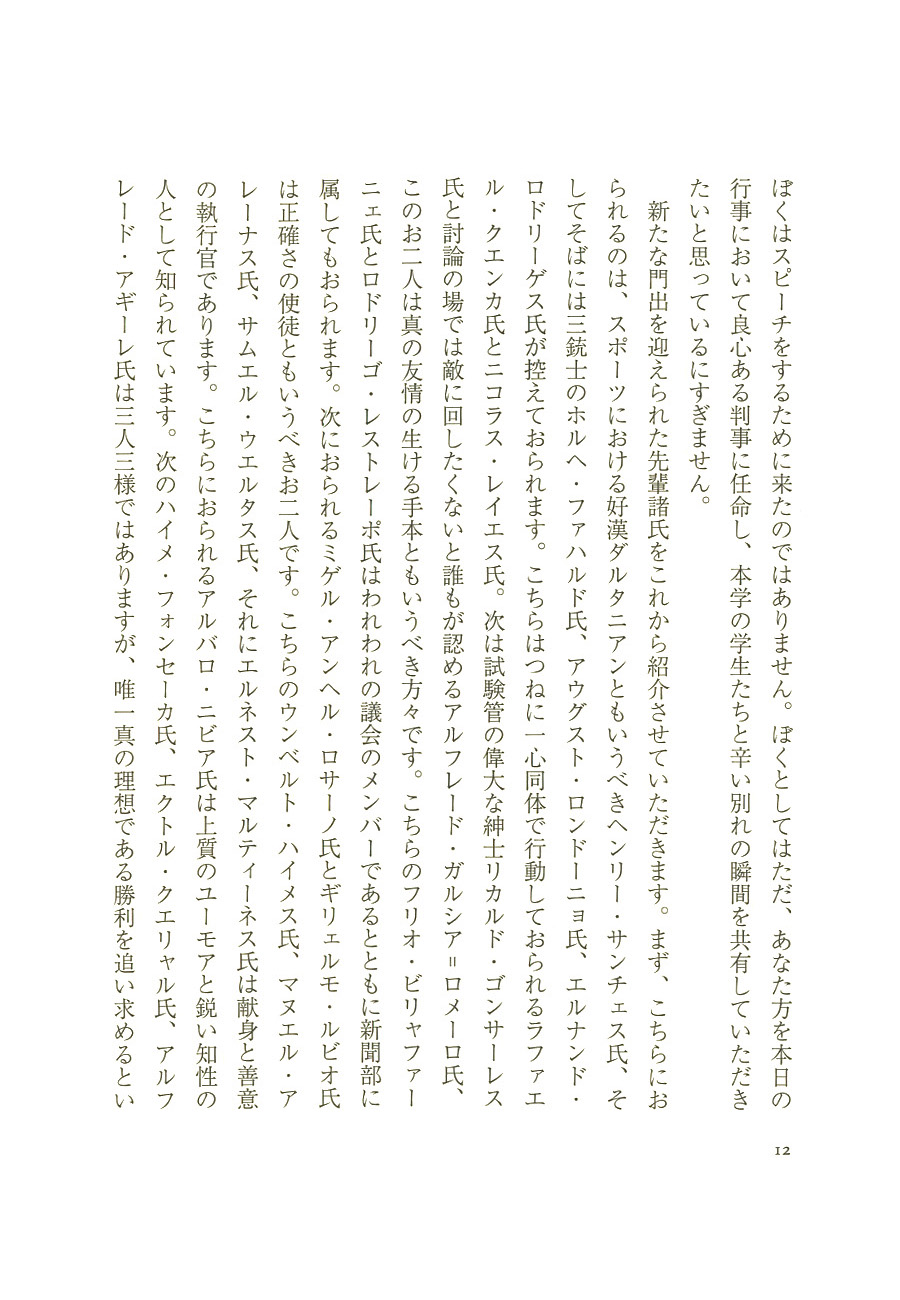 ぼくはスピーチをするために来たのではありません。ぼくとしてはただ、あなた方を本日の
行事において良心ある判事に任命し、本学の学生たちと辛い別れの瞬間を共有していただき
たいと思っているにすぎません。
新たな門出を迎えられた先輩諸氏をこれから紹介させていただきます。まず、こちらにお
られるのは、スポーツにおける好漢ダルタニアンともいうべきヘンリー・サンチェス氏、そ
してそばには三銃士のホルヘ・ファハルド氏、アウグスト・ロンドーニョ氏、エルナンド・
ロドリーゲス氏が控えておられます。こちらはつねに一心同体で行動しておられるラファエ
ル・クエンカ氏とニコラス・レイエス氏。次は試験管の偉大な紳士リカルド・ゴンサーレス
氏と討論の場では敵に回したくないと誰もが認めるアルフレード・ガルシア＝ロメーロ氏、
このお二人は真の友情の生ける手本ともいうべき方々です。こちらのフリオ・ビリャファー
ニェ氏とロドリーゴ・レストレーポ氏はわれわれの議会のメンバーであるとともに新聞部に
属してもおられます。次におられるミゲル・アンヘル・ロサーノ氏とギリェルモ・ルビオ氏
は正確さの使徒ともいうべきお二人です。こちらのウンベルト・ハイメス氏、マヌエル・ア
レーナス氏、サムエル・ウエルタス氏、それにエルネスト・マルティーネス氏は献身と善意
の執行官であります。こちらにおられるアルバロ・ニビア氏は上質のユーモアと鋭い知性の
人として知られています。次のハイメ・フォンセーカ氏、エクトル・クエリャル氏、アルフ
レード・アギーレ氏は三人三様ではありますが、唯一真の理想である勝利を追い求めるとい
12